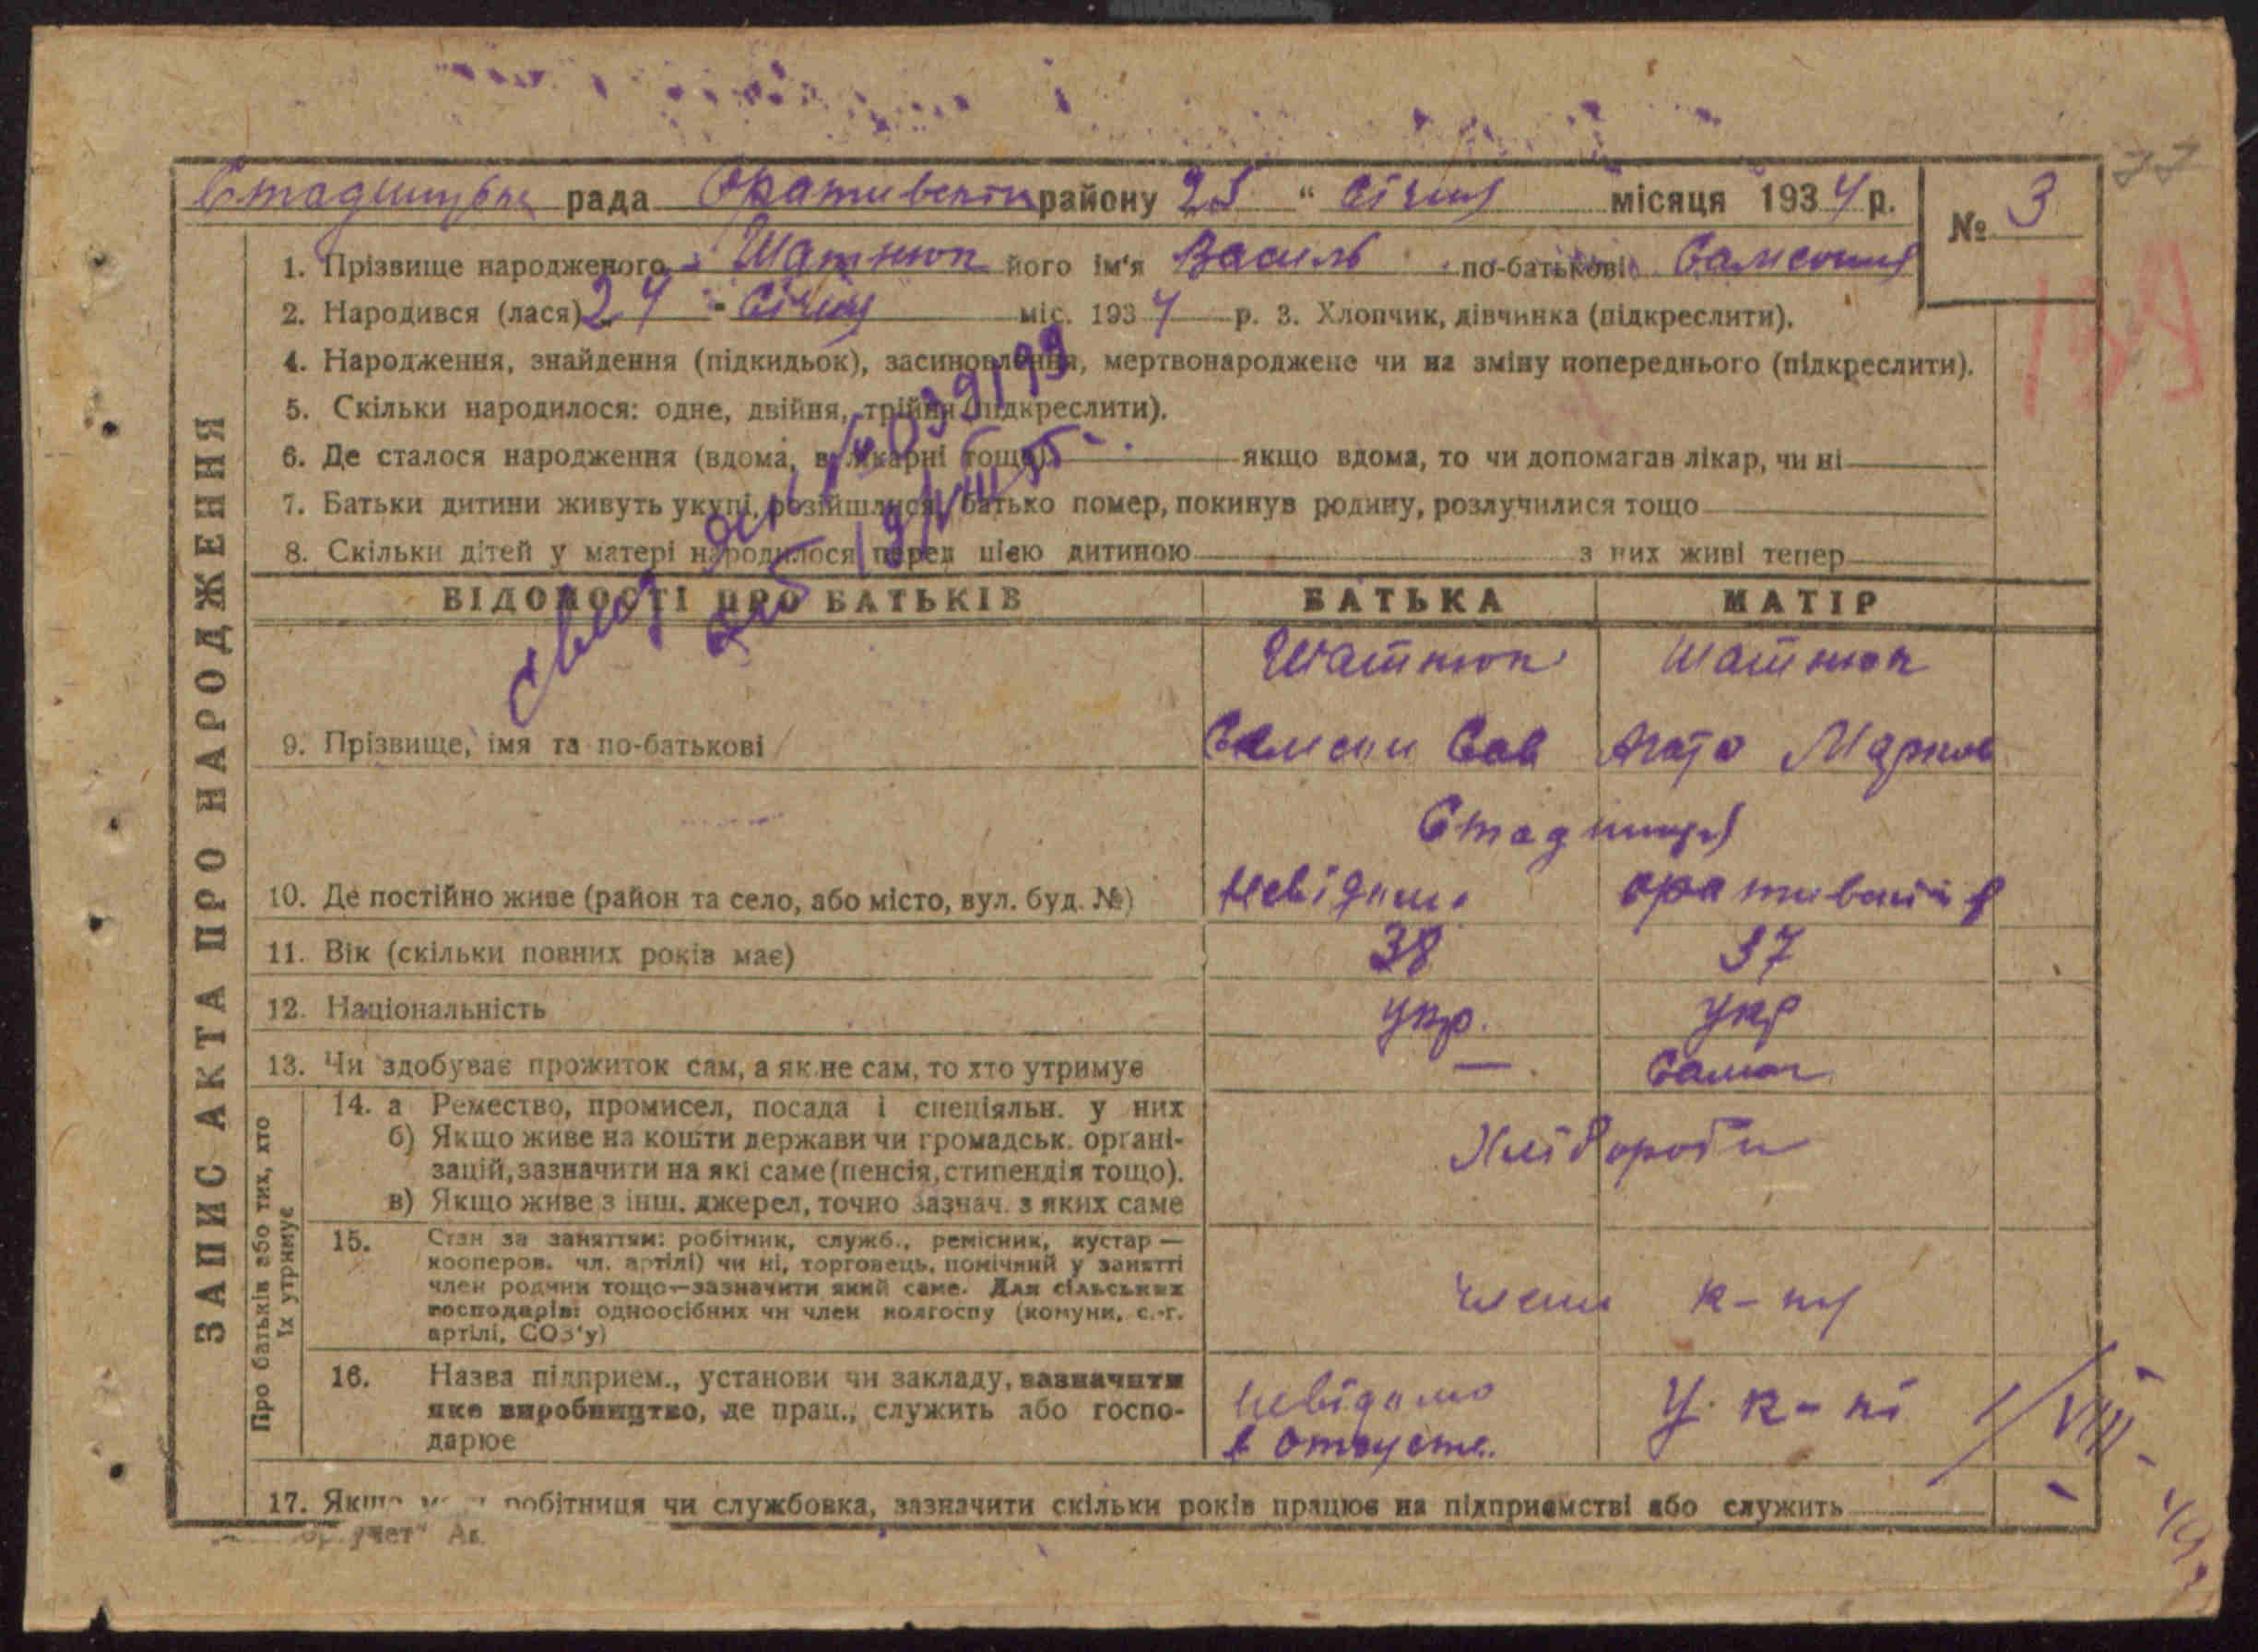 рада Оративського району 25 " січня місяця 1934 р.
№ 3
77
1. Прізвище народженого Шатнюк його ім'я Василь по-батькові Самсонив
2. Народився (лася) 24 - січня міс. 1934 р. 3. Хлопчик, дівчинка (підкреслити).
4. Народження, знайдення (підкидьок), засиновлення, мертвонароджене чи на зміну попереднього (підкреслити).
5. Скільки народилося: одне, двійня, трійня (підкреслити).
6. Де сталося народження (вдома, в лікарні тощо) якщо вдома, то чи допомагав лікар, чи ні
7. Батьки дитини живуть укупі, розійшлися, батько помер, покинув родину, розлучилися тощо
8. Скільки дітей у матері народилося перед цією дитиною з них живі тепер
ЗАПИС АКТА ПРО НАРОДЖЕННЯ
ВІДОМОСТІ ПРО БАТЬКІВ БАТЬКА МАТІР
Шатнюк Шатнюк
9. Прізвище, імя та по-батькові Самсон Сав Агата Марков
Стадниця
10. Де постійно живе (район та село, або місто, вул. буд. №) Невідомо
11. Вік (скільки повних років має) 38 37
12. Національність укр. укр
13. Чи здобуває прожиток сам, а як не сам, то хто утримує — Сама
Про батьків або тих, хто
їх утримує
14. а Ремество, промисел, посада і спеціяльн. у них
б) Якщо живе на кошти держави чи громадськ. органі-
зацій, зазначити на які саме (пенсія, стипендія тощо).
в) Якщо живе з інш. джерел, точно зазнач. з яких саме
Хлібороби
15. Стан за заняттям: робітник, служб., ремісник, кустар —
кооперов. чл. артілі) чи ні, торговець, помічний у занятті
член родини тощо—зазначити який саме. Для сільських
господарів: одноосібних чи член колгоспу (комуни, с.-г.
артілі, СОЗ'у)
члени к-пу
16. Назва підприєм., установи чи закладу, зазначити
яке виробництво, де прац., служить або госпо-
дарює
невідомо У к-пі
17. Якщо робітниця чи службовка, зазначити скільки років працює на підприємстві або служить
учет"